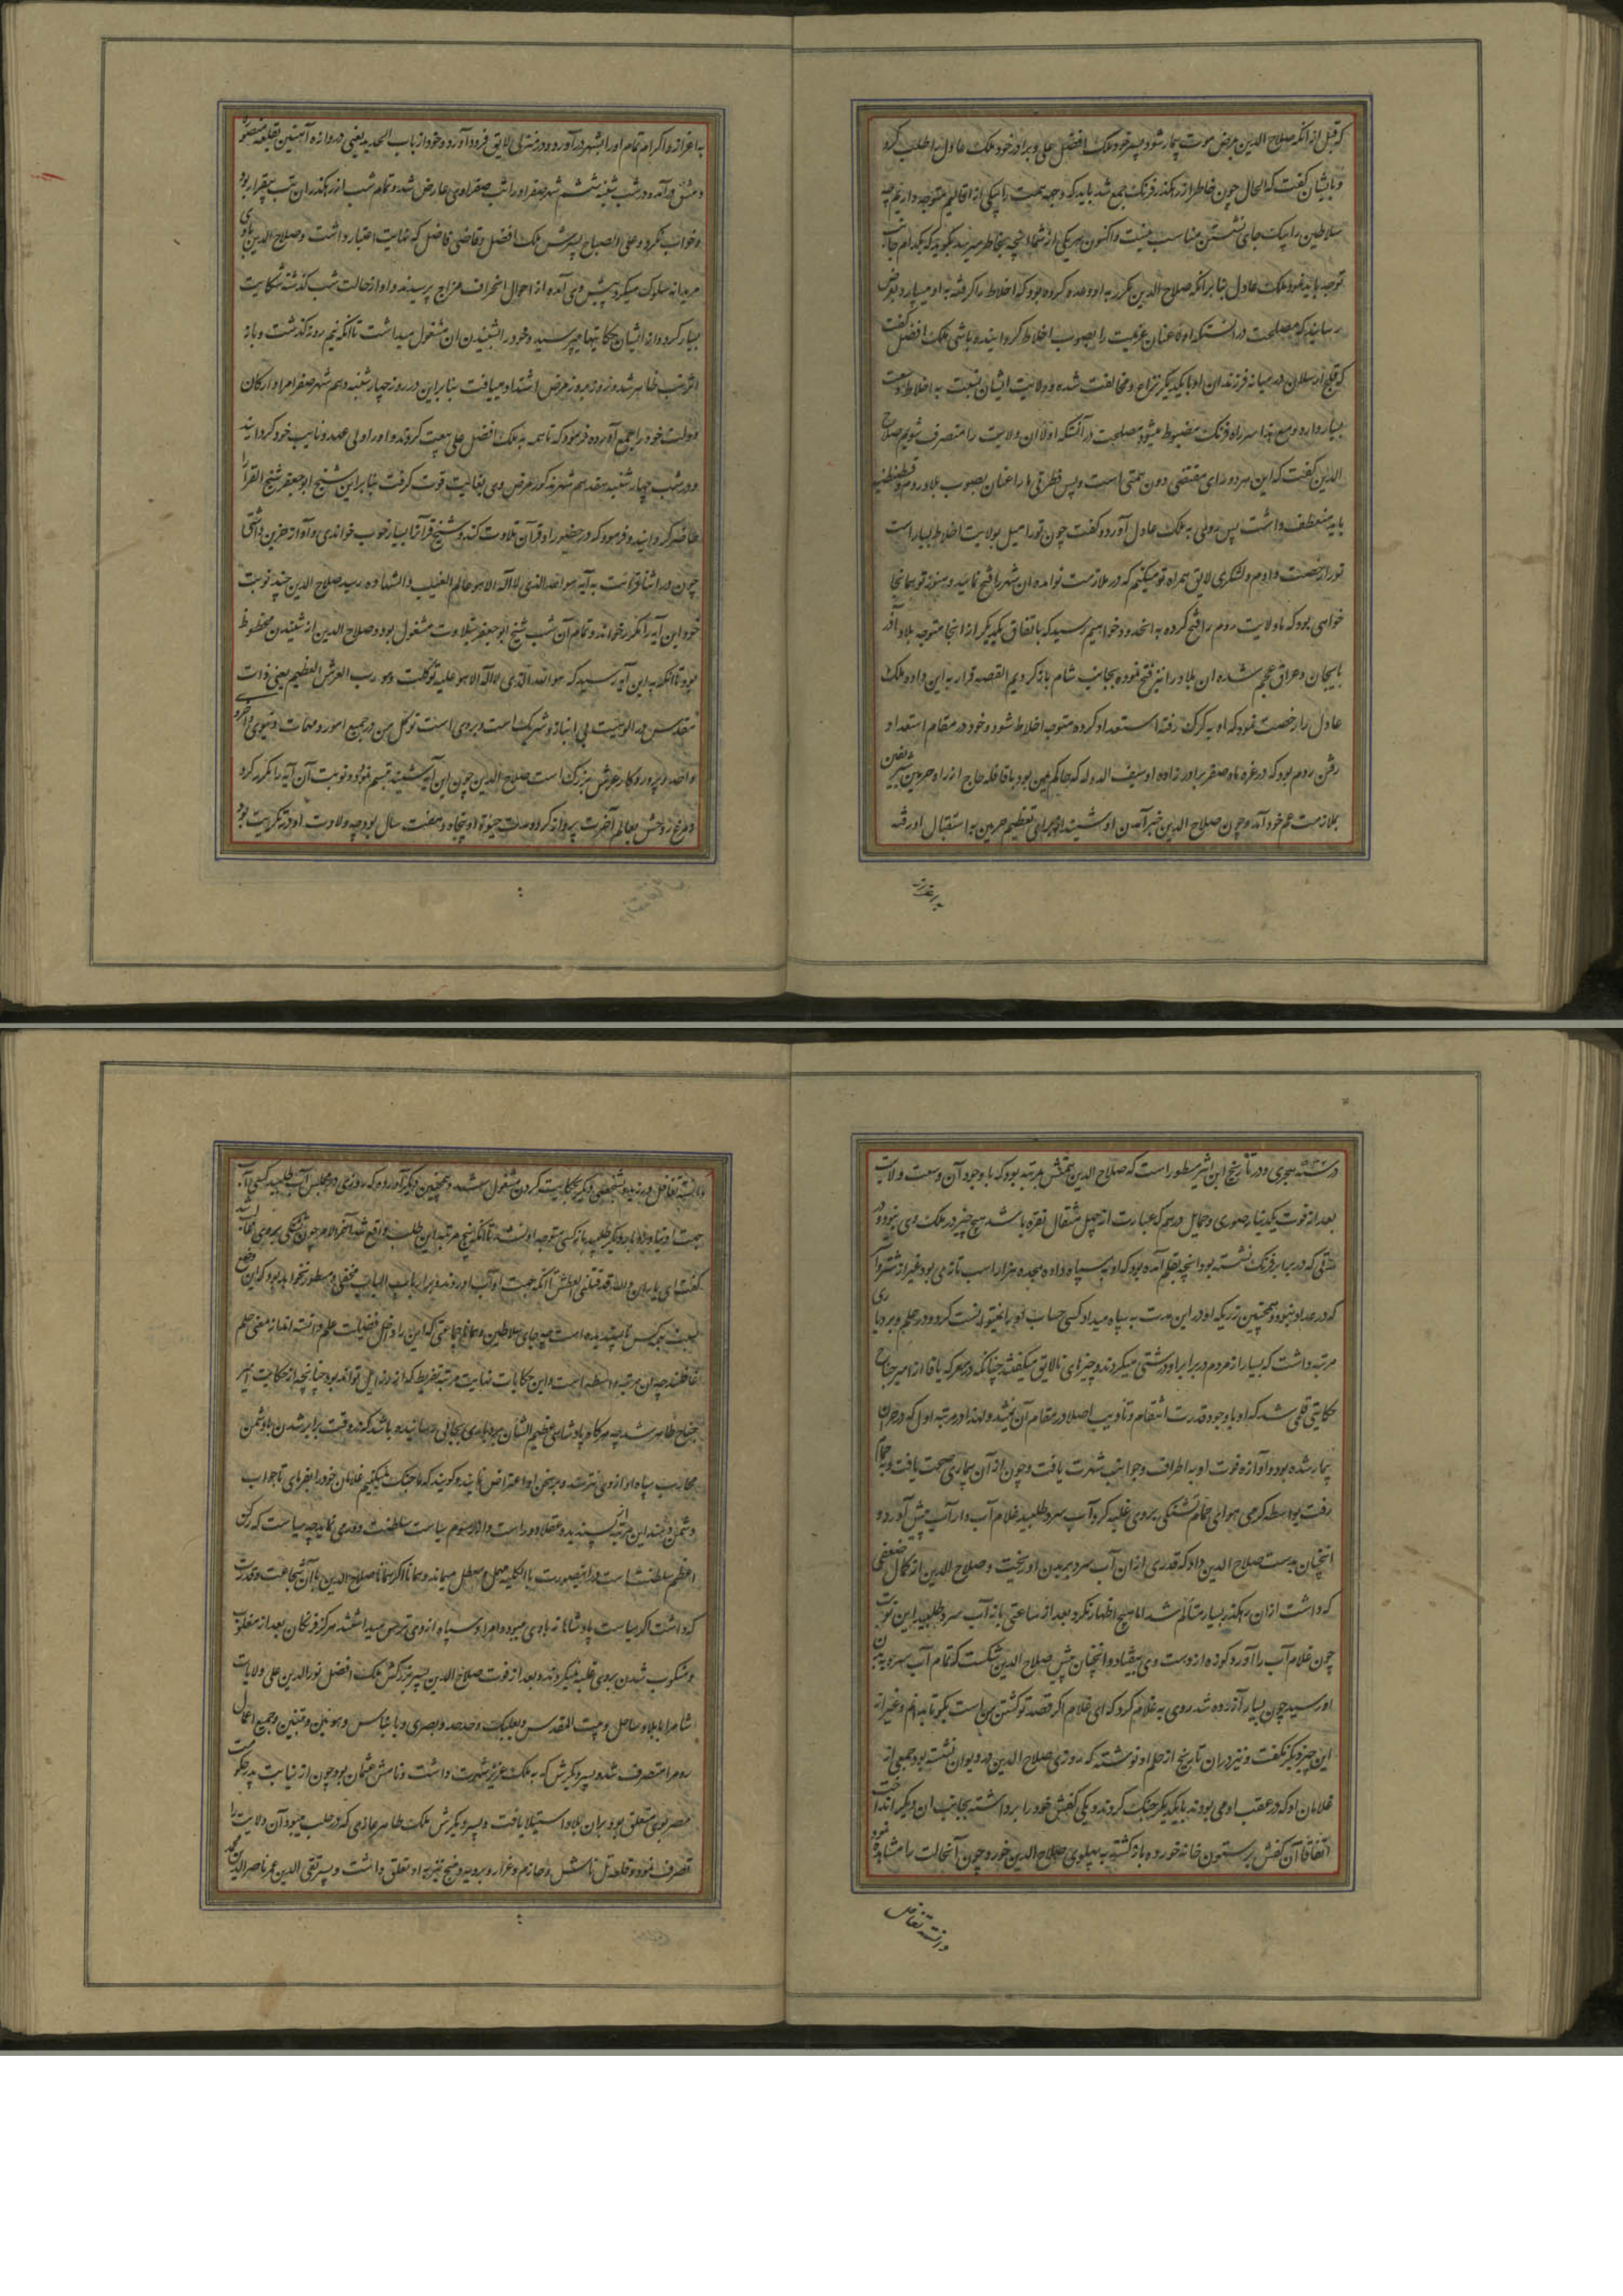 که قبل از آنکه صلاح الدین بمرض موت بیمار شود پسر خود ملک افضل علی و برادر خود ملک عادل را طلب کرد
و بایشان گفت که الحال چون خاطر از رهگذر فرنگ جمع شد باید که وجه همت را بیکی از اقالیم متوجه داریم چه
سلاطین را بیک جای نشستن مناسب نیست و اکنون هر یکی از شما آنچه بخاطر میرسد بگوید که بکدام جانب
توجه باید نمود ملک عادل بنا بر آنکه صلاح الدین مکرر به او وعده کرده بود که اخلاط را گرفته به او میسپارد بعرض
رسانید که مصلحت در آنستکه اولا عنان عزیمت را بصوب اخلاط گردانیده باشی ملک افضل گفت
که قلج ارسلان در میانه فرزندان او با یکدیگر نزاع و مخالفت شده و ولایت ایشان نسبت به اخلاط وسعت
بسیار دارد و مع هذا سر راه فرنگ مضبوط میشود مصلحت در آنستکه اولا آن ولایت را متصرف شویم صلاح
الدین گفت که این هر دو رای مقتضی دون همتی است و پس فطرتی ما را عنان بصوب بلاد روم و قسطنطنیه
باید منعطف داشت پس روی به ملک عادل آورد و گفت چون تو را میل بولایت اخلاط بسیار است
تو را رخصت دادم و لشکری لایق همراه تو میکنم که در ملازمت تو آمده آن شهر را فتح نمایند و هنوز تو بهمانجا
خواهی بود که ما ولایت روم را فتح کرده به آنحدود خواهیم رسید که باتفاق یکدیگر از آنجا متوجه بلاد آذر
بایجان و عراق عجم شده آن بلاد را نیز فتح نموده بجانب شام بازگردیم القصه قرار به این داد و ملک
عادل را رخصت نمود که او به کرک رفته استعداد کرده متوجه اخلاط شود و خود در مقام استعداد
رفتن روم بود که در غره ماه صفر برادرزاده او سیف الدوله که حاکم یمن بود با قافله حاج از راه حرمین شریفین
بملازمت عم خود آمد و چون صلاح الدین خبر آمدن او شنید از برای تعظیم حرمین به استقبال او رفته
به اعزاز
به اعزاز و اکرام تمام او را بشهر درآورد و در منزلی لایق فرود آورد و خود از باب الحدید یعنی دروازه آهنین بقلعه
دمشق درآمد و در شب شنبه ششم شهر صفر او را تب صفراوی عارض شد و تمام شب از رهگذر آن تب بیقرار بود
و خواب نکرد و علی الصباح پسرش ملک افضل و قاضی فاضل که غایت اعتبار داشت و صلاح الدین با وی
مریدانه سلوک میکرد پیش وی آمده از احوال انحراف مزاج پرسیدند و او از حالت شب گذشته شکایت
بسیار کرد و از ایشان حکایتها میپرسید و خود را بشنیدن آن مشغول میداشت تا آنکه نیم روز گذشت و باز
اثر تب ظاهر شد و روز بروز مرض اشتداد مییافت بنا بر این در روز چهارشنبه دهم شهر صفر امرا و ارکان
دولت خود را جمع آورده فرمود که تا همه به ملک افضل علی بیعت کردند و او را ولی عهد و نایب خود گردانید
و در شب چهارشنبه هفدهم شهر مذکور مرض وی بغایت قوت گرفت بنا بر این شیخ ابو جعفر شیخ القرا را
حاضر گردانیده فرمود که در حضور او قرآن تلاوت کند و شیخ قرآن را بسیار خوب خواندی و آواز حزین داشتی
چون در اثنا قرائت به آیه هو الله الذی لا اله الا هو عالم الغیب والشهاده رسید صلاح الدین چند نوبت
خود این آیه را مکرر خواند و تمام آن شب شیخ ابو جعفر بتلاوت مشغول بود و صلاح الدین از شنیدن محظوظ
بود تا آنکه به این آیه رسید که هو الله الذی لا اله الا هو علیه توکلت و هو رب العرش العظیم یعنی ذات
مقدس در الوهیت بی انباز و شریک است و بر وی است توکل من در جمیع امور و مهمات دنیوی و اخروی
و احد و پروردگار عرش بزرگ است صلاح الدین چون این آیه شنید تبسم نمود و دو نوبت آن آیه را مکرر کرد
و مرغ روحش بعالم آخرت پرواز کرد و مدت حیوة او پنجاه و هفت سال بود چه ولادت او در تکریت بود
در سنه هجری و در تاریخ ابن اثیر مسطور است که صلاح الدین همتش بمرتبه بود که با وجود آن وسعت ولایت
بعد از فوت یک دینار صوری و چهل درهم که عبارت از چهل مثقال نقره باشد هیچ چیز در ملک وی نبود و در
مدتی که در برابر فرنگ نشسته بود آنچه بقلم آمده بود که او به سپاه داده هجده هزار اسب تازی بود غیر از شتر و
که در عدد نبود و همچنین زری که او در این مدت به سپاه میداد کسی حساب او را نمیتوانست کرد و در حلم و بردباری
مرتبه داشت که بسیار از مردم در برابر او درشتی میکردند و چیزهای نالایق میگفتند چنانکه در معرکه یافا از امیر جناح
حکایتی قلمی شد که او با وجود قدرت انتقام و تادیب اصلا در مقام آن نمیشد و لهذا در مرتبه اول که در حران
بیمار شده بود و آوازه فوت او به اطراف و جوانب شهرت یافت و چون از آن بیماری صحت یافت و به حمام
رفت بواسطه گرمی هوای حمام تشنگی بر وی غلبه کرد آب سرد طلبید غلام آب دار آب پیش آورد و
آنچنان بدست صلاح الدین داد که قدری از آن آب سرد بر بدن او ریخت و صلاح الدین از کمال ضعفی
که داشت از آن رهگذر بسیار متالم شد اما هیچ اظهار نکرد بعد از ساعتی باز آب سرد طلبید این نوبت
چون غلام آب را آورد کوزه از دست وی بیفتاد و آنچنان پیش صلاح الدین شکست که تمام آب سرد به بدن
او رسید چون بسیار آزرده شد روی به غلام کرد که ای غلام اگر قصد تو کشتن من است بگو تا بدانم و غیر از
این چیز دیگر نگفت و نیز در آن تاریخ از حلم او نوشته که روزی صلاح الدین در دیوان نشسته بود جمعی از
غلامان او که در عقب او می بودند با یکدیگر جنگ کردند و یکی کفش خود را برداشته بجانب آن دیگر انداخت
اتفاقا آن کفش بر ستون خانه خورده بازگشته به پهلوی صلاح الدین خورد و چون آنحالت را مشاهده نمود
دانسته تغافل
دانسته تغافل ورزیده بشخصی دیگر بحکایت کردن مشغول شد و همچنین دیگر آورده که روزی در مجلس آب طلبید کسی آب
جهت او نیاورد بار دیگر طلبید باز کسی متوجه او نشد تا آنکه پنج مرتبه این طلب واقع شد آخر الامر چون تشنگی بر وی غالب شد
گفت ای یاران والله قد قتلنی العطش تا آنکه جهت او آب آوردند و بر ارباب الباب مخفی و مستور نخواهد بود که این وضع
نسبت بهر کس ناپسندیده است چه جای سلاطین و همانا جماعتی که این را داخل فضیلت حلم دانسته اند از معنی حلم
غافلند چه آن مرتبه واسطه است و این حکایات نهایت مرتبه تفریط که از رذایل تواند بود چنانچه از حکایت امیر
جناح ظاهر شد چه هرگاه پادشاهی عظیم الشان بردباری بجائی رسانیده باشد که در وقت برابر شدن با دشمن
محارب سپاه او از وی نترسند و بر سخن او اعتراض نمایند و گویند که ما جنگ نمیکنیم غلامان خود را بفرمای تا جواب
دشمن دهند این مرتبه از پسندیده عقلا دور است و از رسوم سیاست سلطنت دور می نماید چه سیاست که رکن
اعظم سلطنت است در اینصورت بالکلیه مهمل و معطل میماند و همانا اگر سلطان صلاح الدین با آن شجاعت و قدرت
که داشت اگر سیاست پادشاهانه با وی میبود و امرا و سپاه از وی ترس میداشتند هرگز فرنگان بعد از مغلوب
و منکوب شدن بر وی غلبه نمیکردند و بعد از فوت صلاح الدین پسر بزرگش ملک افضل نورالدین علی ولایات
شام را با بلاد ساحل و بیت المقدس و بعلبک و صرخد و بصری و بانیاس و هونین و تبنین و جمیع اعمال
را متصرف شد و پسر دیگرش که به ملک عزیز شهرت داشت و نامش عثمان بود چون از نیابت پدر حکومت
مصر بوی متعلق بود بر آن بلاد استیلا یافت و پسر دیگرش ملک ظاهر غازی که در حلب میبود آن ولایت را
تصرف نمود و قلعه تل باشر و حارم و اعزاز و برزیه و منبج نیز به او تعلق داشت و پسر تقی الدین عمر ناصرالدین محمد